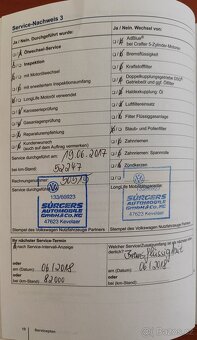 Service-Nachweis 3
Ja / Nein. Durchgeführt wurde:
Ölwechsel-Service
Inspektion
mit Motorölwechsel
mit erweitertem Inspektionsumfang
LongLife Motoröl verwendet
Karosserieprüfung
Garantieprüfung
Reparaturempfehlung
Kundenwunsch
(auch auf dem Auftrag vermerkt)
Service durchgeführt am: 19.06.2017
bei km-Stand: 52247
Rechnungsnr.
133/60923
SÜRGERS
AUTOMOBILE
GMBH & CO. KG
47623 Kevelaer
Stempel des Volkswagen Nutzfahrzeuge Partners
Ja / Nein. Wechsel von:
AdBlue®
bei Crafter 5-Zylinder-Motoren
Bremsflüssigkeit
Kraftstofffilter
Doppelkupplungsgetriebe DSG®
Getriebeöl und ggf. Ölfilter
Haldexkupplung Öl
Luftfiltereinsatz
Filter Flüssiggasanlage
Staub- und Pollenfilter
Zahnriemen
Zahnriemen Spannrolle
Zündkerzen
LongLife Mobilitätsgarantie
SÜRGERS
AUTOMOBILE
GMBH & CO. KG
47623 Kevelaer
Stempel des Volkswagen Nutzfahrzeuge Partners
Ihr nächster Service-Termin
nach Service-Intervall-Anzeige
oder
am (Datum) 06/2018
oder
bei (km-Stand) 82000
Bremsflüssigkeit
am (Datum) 06/2018
oder
bei (km-Stand)
Serviceplan